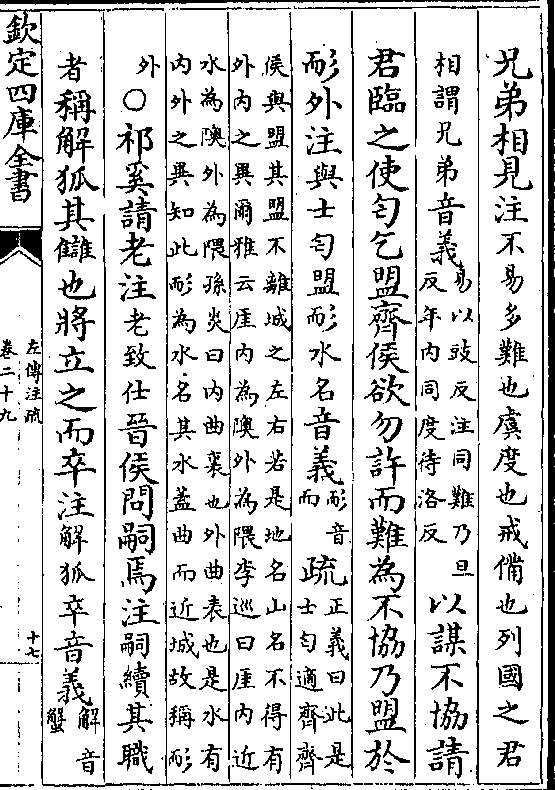 兄弟相見注不易多難也虞度也戒備也列國之君
相謂兄弟音義易以豉反注同難乃旦
反年內同度待洛反以謀不協請
君臨之使匄乞盟齊侯欲勿許而難為不協乃盟於
耏外注與士匄盟耏水名音義耏音
而疏正義曰此是
士匄適齊齊
侯與盟其盟不離城之左右若是地名山名不得有
外內之異爾雅云厓內為隩外為隈李巡曰厓內近
水為隩外為隈孫炎曰內曲裏也外曲表也是水有
內外之異知此耏為水名其水蓋曲而近城故稱耏
外○祁奚請老注老致仕晉侯問嗣焉注嗣續其職
者稱解狐其讎也將立之而卒注解狐卒音義解音
蟹
欽定四庫全書
左傳注疏
卷二十九
十七